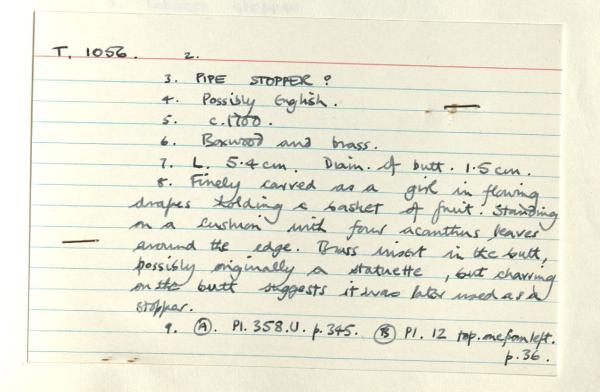 T. 1056. 2.
3. PIPE STOPPER?
4. Possibly English.
5. c.1700.
6. Boxwood and brass.
7. L. 5.4cm. Diam. of butt. 1.5cm.
8. Finely carved as a girl in flowing
drapes holding a basket of fruit. Standing
on a cushion with four acanthus leaves
around the edge. Brass insert in the butt,
possibly originally a statuette, but charring
on the butt suggests it was later used as a
stopper.
9. (A). Pl. 358.U. p.345. (B) Pl. 12 top. one from left.
p.36.